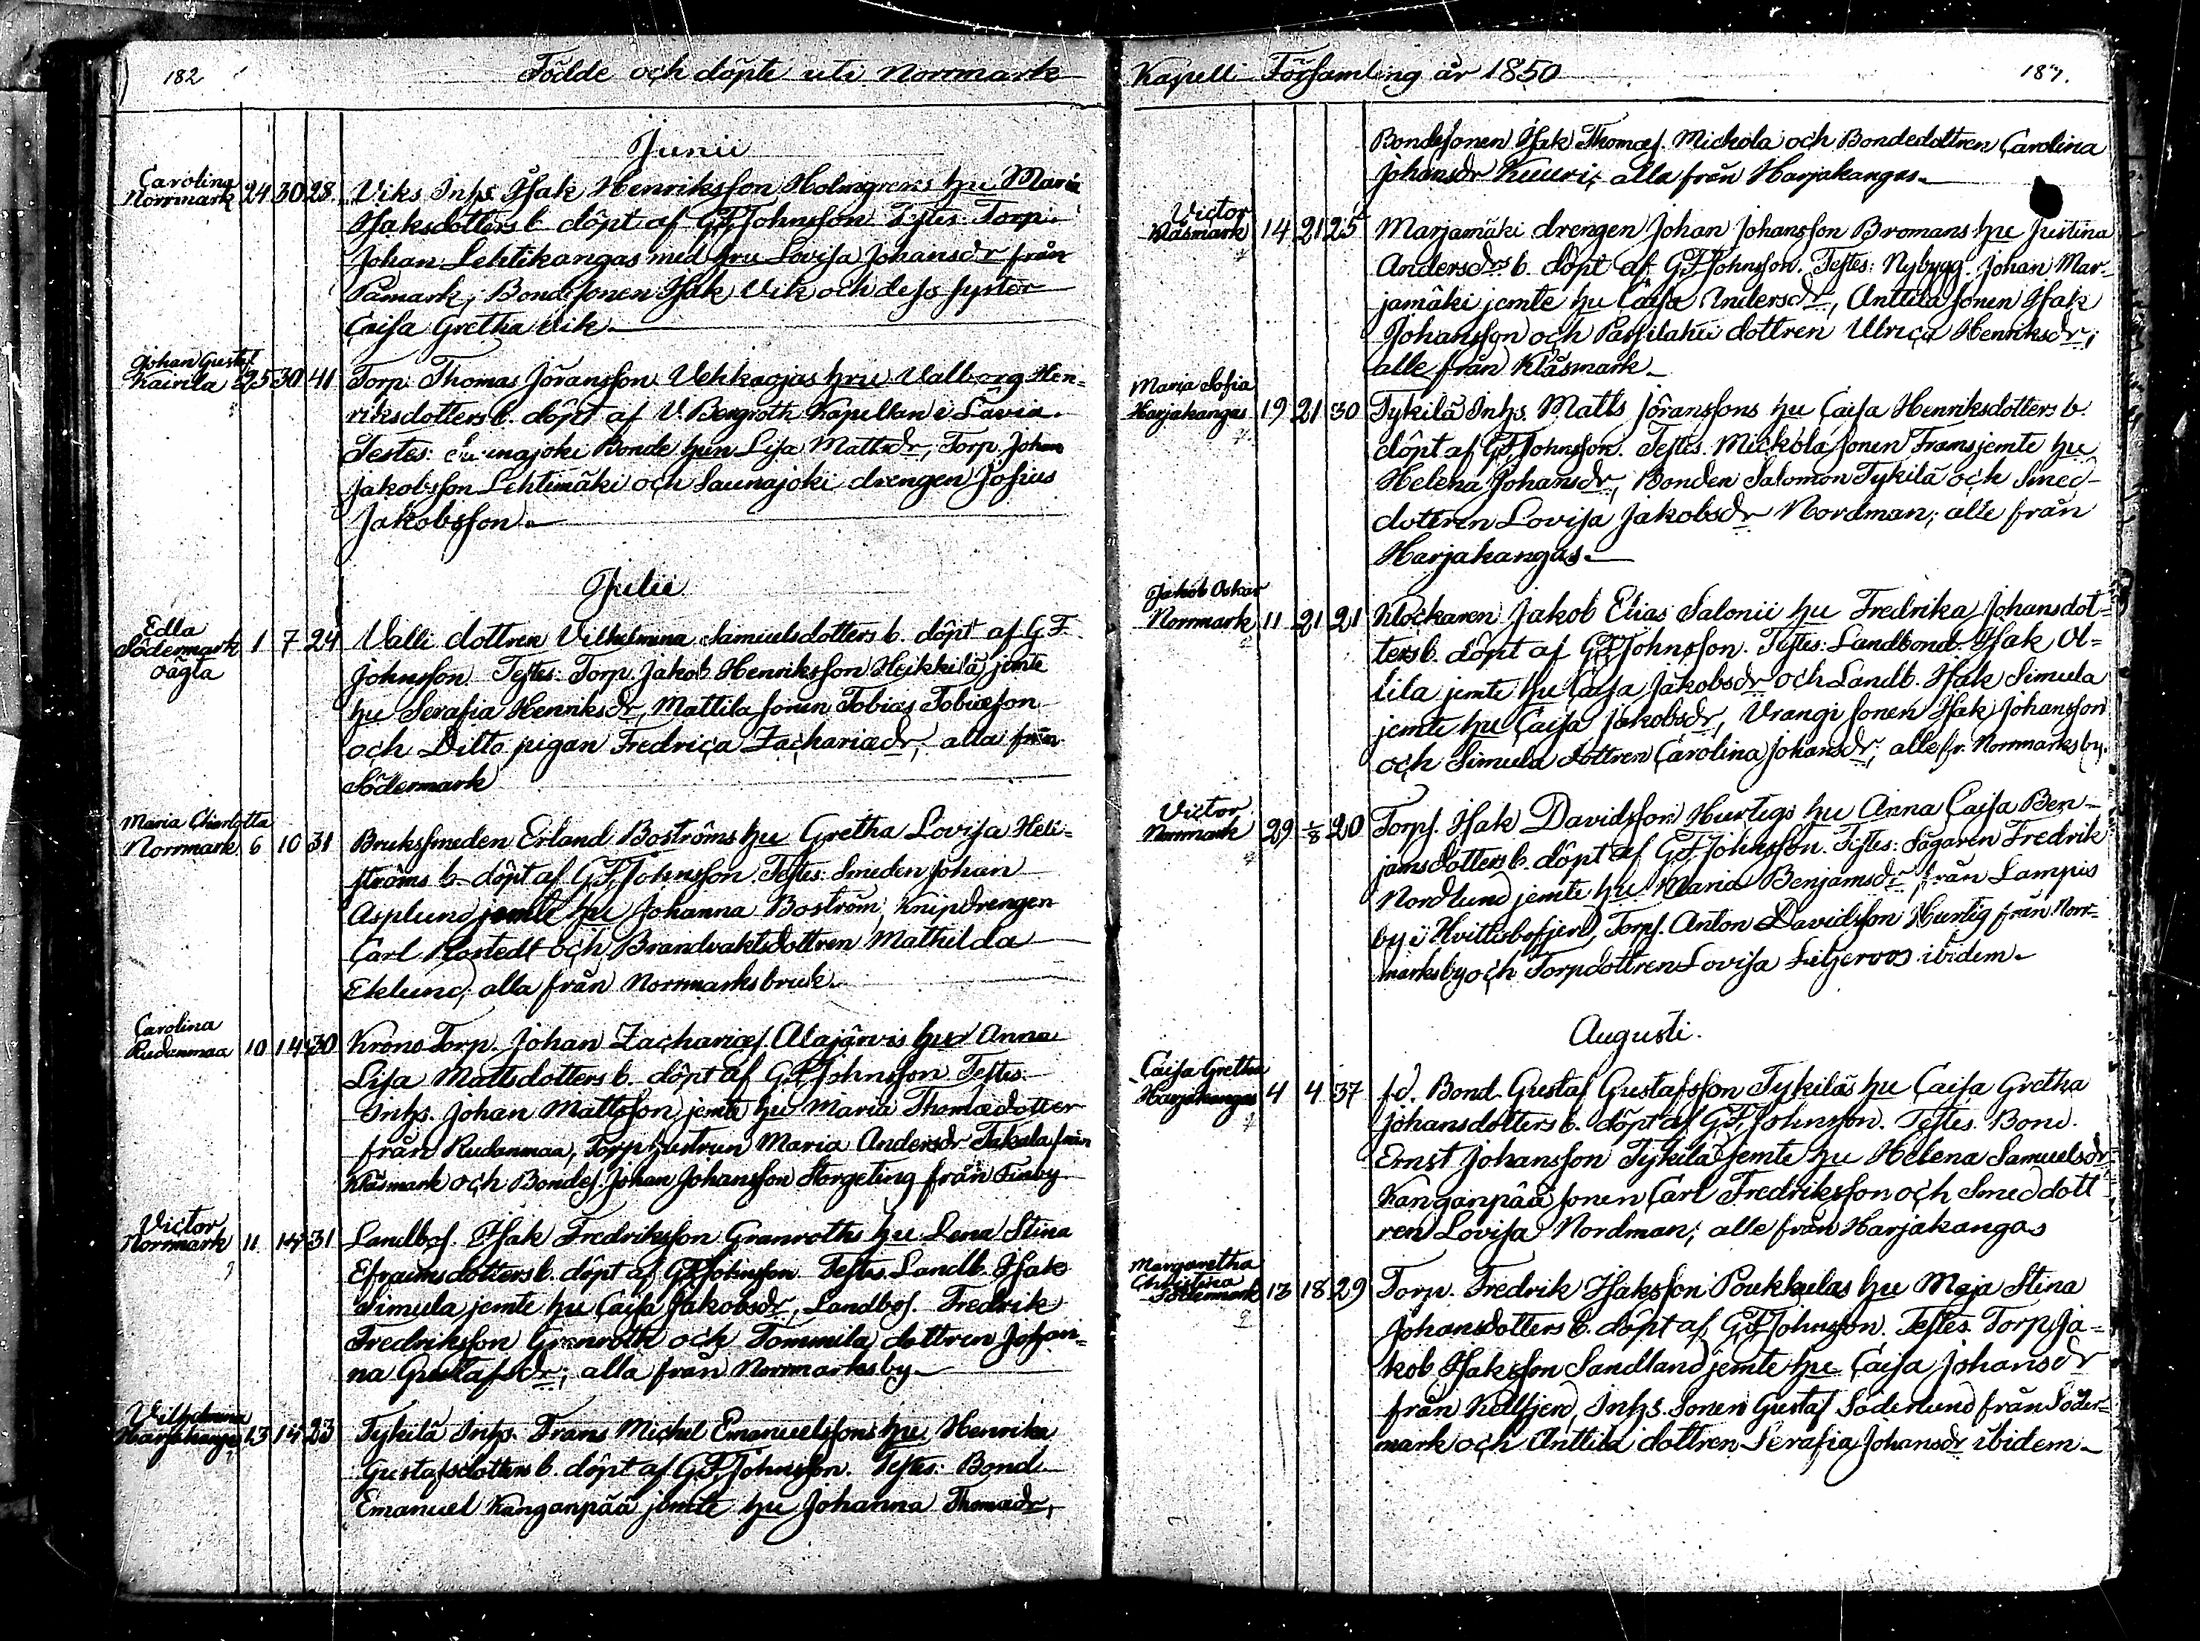 182
Födde och döpte uti Norrmark
Junii
Carolina
Norrmark 24 30 28. Viks Inhs Isak Henriksson Holmgrens hu Maria
Isaksdotters b. döpt af G F Johnsson Testes: Torp.
Johan Lehtikangas med hru Lovisa Johansdr från
Påmark; Bondesonen Isak Vik och dess syster
Caisa Gretha Vik.
Johan Gustaf
Kairila 25 30 41 Torp. Thomas Jöransson Vehkaojas hru Valborg Hen-
riksdotters b. döpt af V. Bergroth Kapellan i Lavia.
Testes: Bonde hun Lisa Mattsdr, Torp. Johan
Jakobsson Lehtimäki och Saunajoki drengen Josius
Jakobsson.
Julii
Edla
Södermark 1 7 24 Valli dottren Vilhelmina Samuelsdotters b. döpt af G F.
oägta
Johnsson. Testes: Torp. Jakob Henriksson Heikkilä jemte
hu Serafia Henriksdr, Mattila sonen Tobias Tobiasson
och Ditto pigan Fredrica Zachariadr, alla från
Södermark
Maria Charlotta
Norrmark 6 10 31 Bruksmeden Erland Boströms hu Gretha Lovisa Heli-
ströms b. döpt af G F Johnsson. Testes: Smeden Johan
Asplund jemte hu Johanna Boström, Knipdrengen
Carl Rostedt och Brandvaktsdottren Mathilda
Eklund, alla från Norrmarks bruk.
Carolina
Rudanmaa 10 14 30 Krono Torp. Johan Zachariæs. Alajärvis hu Anna
Lisa Mattsdotters b. döpt af G F Johnsson. Testes:
Inhs. Johan Mattsson jemte hu Maria Thomædotter
från Rudanmaa, Torp hustrun Maria Andersdr Takala från
Klåsmark och Bondes. Johan Johansson Storgeting från Finby.
Victor
Norrmark 11 14 31 Landbos. Isak Fredriksson Granroths hu Lena Stina
Efraimsdotters b. döpt af G F Johnsson Testes: Landb. Isak
Simula jemte hu Caisa Jakobsdr, Landbos. Fredrik
Fredriksson Granroth och Tommila dottren Johan-
na Gustafsdr; alla från Norrmarks by.
Vilhelmina
Harjakangas 13 14 23 Tykilä Inhs. Frans Michel Emanuelssons hu Henrika
Gustafsdotters b. döpt af G F Johnsson. Testes: Bond.
Emanuel Kanganpää jemte hu Johanna Thomædr,
Kapell Församling år 1850
187.
Bondesonen Isak Thomæs. Mickola och Bondedottren Carolina
Johansdr Kuuri; alla från Harjakangas.
Victor
Klåsmark 14 21 25 Marjamäki drengen Johan Johansson Bromans hu Justina
Andersdrs b. döpt af G F Johnsson. Testes: Nybygg. Johan Mar-
jamäki jemte hu Caisa Andersdr, Anttila sonen Isak
Johansson och Passilahti dottren Ulrica Henriksdr;
alle från Klåsmark.
Maria Sofia
Harjakangas 19 21 30 Tykilä Inhs. Matts Jöranssons hu Caisa Henriksdotters b.
döpt af G F Johnsson. Testes. Mickola sonen Frans jemte hu
Helena Johansdr, Bonden Salomon Tykilä och Smed-
dottren Lovisa Jakobsdr Nordman; alle från
Harjakangas.
Jakob Oskar
Norrmark 11 21 21 Klockaren Jakob Elias Salonii hu Fredrika Johansdot-
ters b. döpt af G F Johnsson. Testes: Landbond. Isak Ol-
lila jemte hu Caisa Jakobsdr och Landb. Isak Simula
jemte hu Caisa Jakobsdr, Vrangi sonen Isak Johansson
och Simula dottren Carolina Johansdr; alle fr. Norrmarks by.
Victor
Norrmark 29 1/8 20 Torps. Isak Davidsson Hurtigs hu Anna Caisa Ben-
jamsdotters b. döpt af G F Johnsson. Testes: Sågaren Fredrik
Nordlund jemte hu Maria Benjamsdr från Lampis
by i Hvittisbofjerd, Torps. Anton Davidsson Hurtig från Norr-
marks by och Torpdottren Lovisa Liljeroos ibidem.
Augusti.
Caisa Gretha
Harjakangas 4 4 37 fd. Bond. Gustaf Gustafsson Tykiläs hu Caisa Gretha
Johansdotters b. döpt af G F Johnsson. Testes. Bond.
Ernst Johansson Tykilä jemte hu Helena Samuelsdr
Kanganpää sonen Carl Fredriksson och Smeddott-
ren Lovisa Nordman; alle från Harjakangas
Margaretha
Christina
Södermark 13 18 29 Torp. Fredrik Isaksson Poukkulas hu Maja Stina
Johansdotters b. döpt af G F Johnsson. Testes. Torp. Ja-
kob Isaksson Sandland jemte hu Caisa Johansdr
från Hvittisfjerd, Inhs. Sonen Gustaf Söderlund från Söder-
mark och Anttila dottren Serafia Johansdr ibidem.